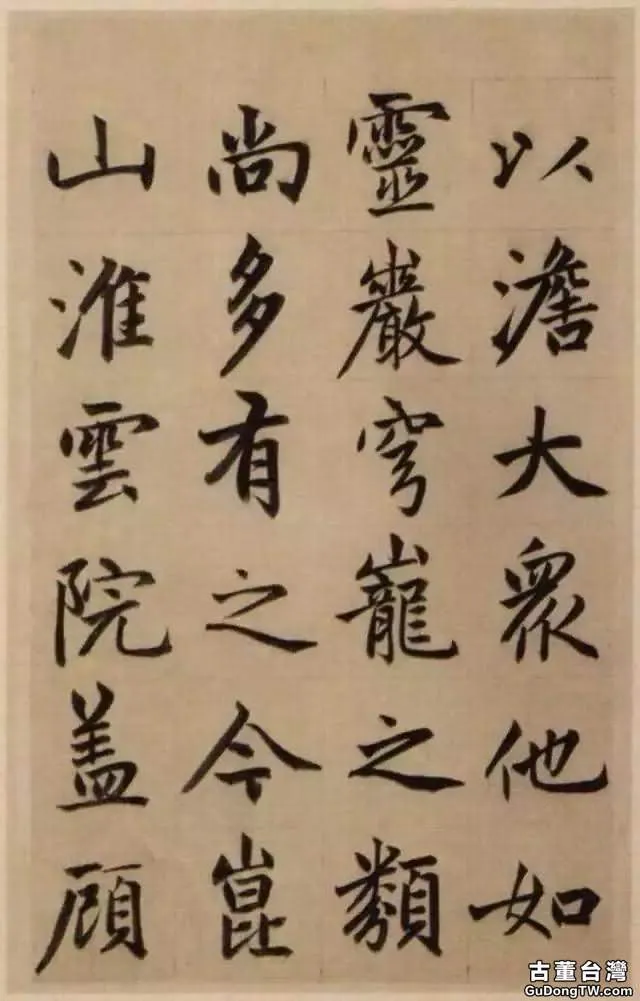 以澹大衆他如
靈巖穹巃之類
尚多有之今崑
山淮雲院盖顧
古董台灣
GuDongTW.com